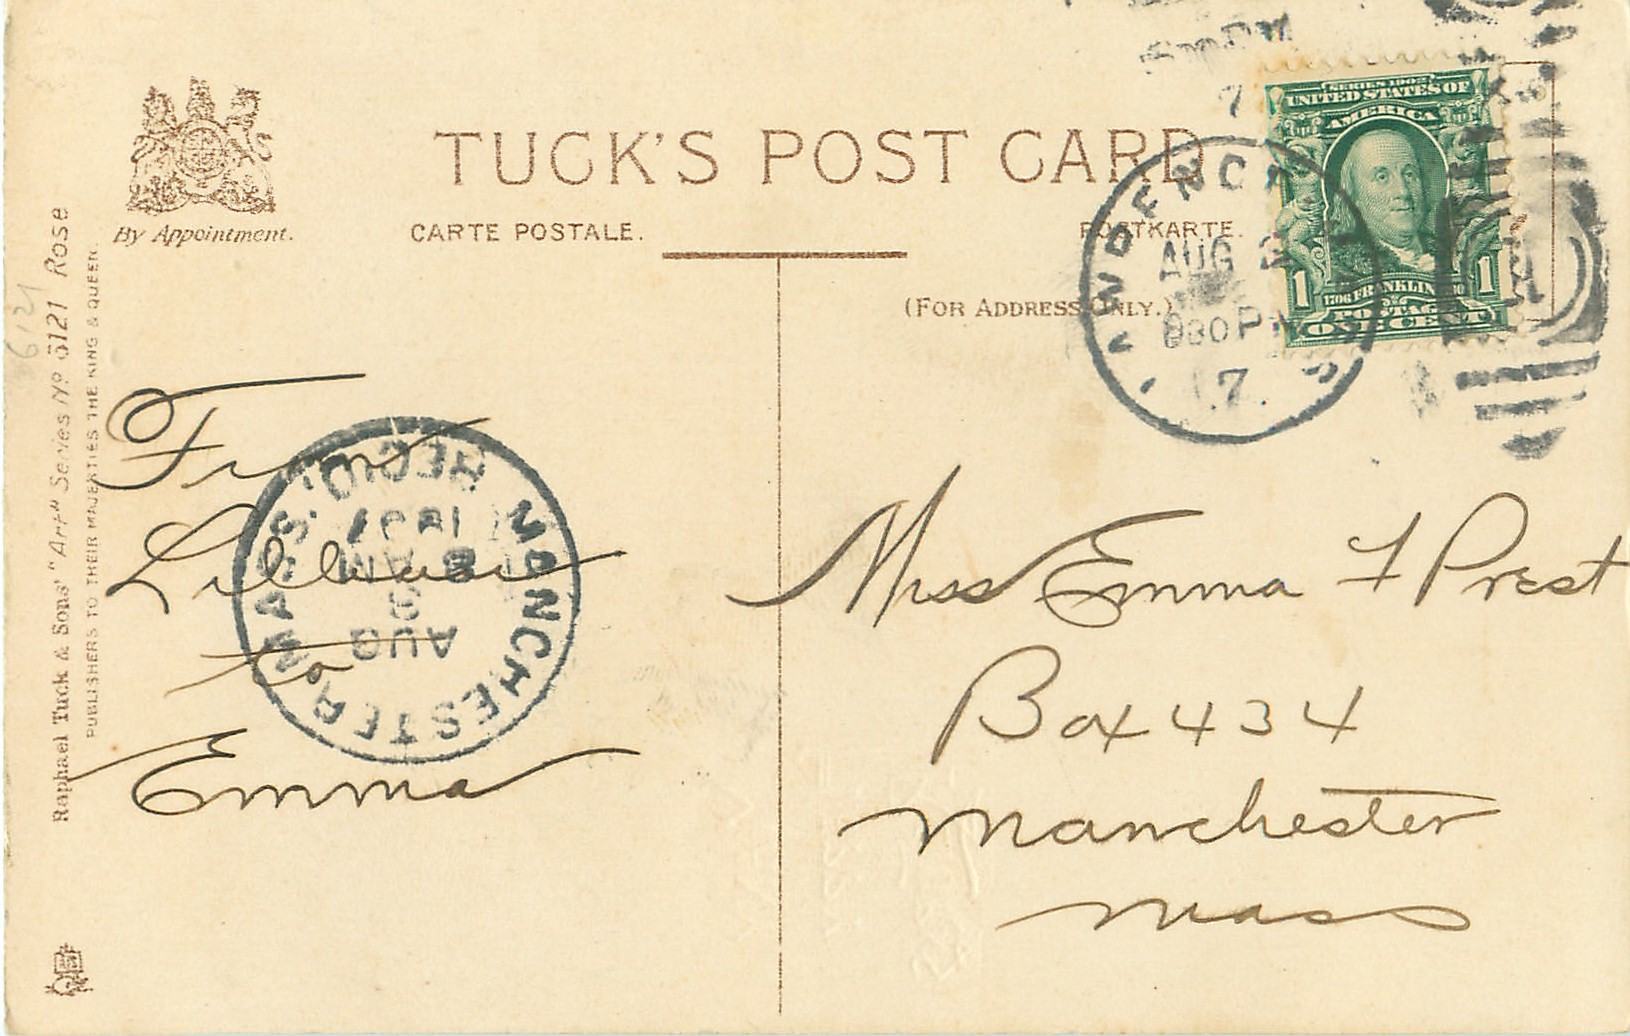 TUCK'S POST CARD
By Appointment.
CARTE POSTALE.
POSTKARTE.
(FOR ADDRESS ONLY.)
Raphael Tuck & Sons' "Art" Series No 6121 Rose
PUBLISHERS TO THEIR MAJESTIES THE KING & QUEEN.
6121
SERIES 1902
UNITED STATES OF
AMERICA
1 1
1706 FRANKLIN 1790
POSTAGE
ONE CENT
AUG 2
830 P
7
MANCHESTER MASS. REC'D.
AUG
3
8 AM
1907
From
Lillian
to
Emma
Miss Emma F Prest
Box 434
Manchester
Mass